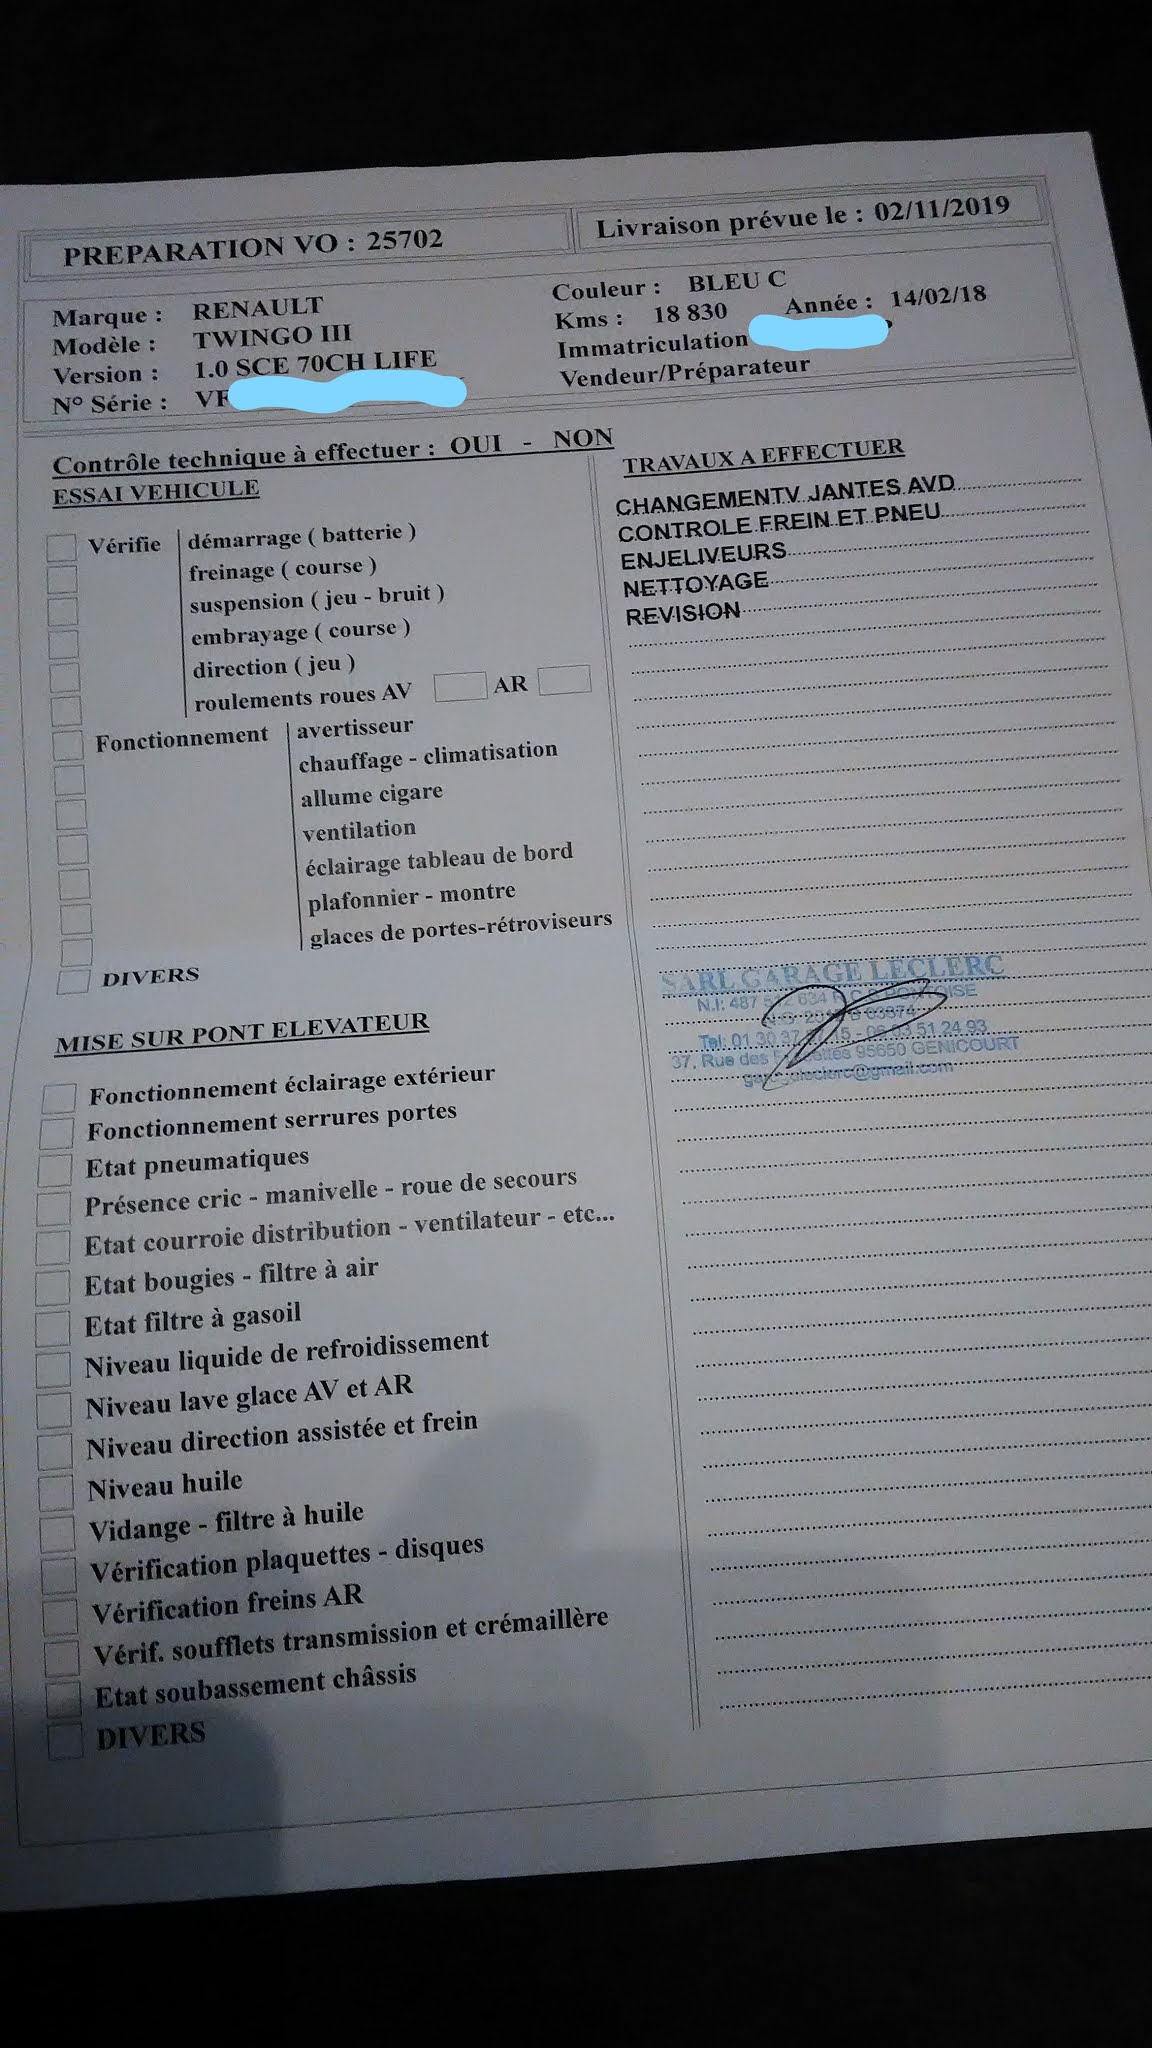 PREPARATION VO : 25702
Livraison prévue le : 02/11/2019
Marque : RENAULT
Modèle : TWINGO III
Version : 1.0 SCE 70CH LIFE
N° Série : VF
Couleur : BLEU C
Kms : 18 830 Année : 14/02/18
Immatriculation
Vendeur/Préparateur
Contrôle technique à effectuer : OUI - NON
ESSAI VEHICULE
Vérifie démarrage ( batterie )
freinage ( course )
suspension ( jeu - bruit )
embrayage ( course )
direction ( jeu )
roulements roues AV AR
Fonctionnement avertisseur
chauffage - climatisation
allume cigare
ventilation
éclairage tableau de bord
plafonnier - montre
glaces de portes-rétroviseurs
DIVERS
MISE SUR PONT ELEVATEUR
Fonctionnement éclairage extérieur
Fonctionnement serrures portes
Etat pneumatiques
Présence cric - manivelle - roue de secours
Etat courroie distribution - ventilateur - etc...
Etat bougies - filtre à air
Etat filtre à gasoil
Niveau liquide de refroidissement
Niveau lave glace AV et AR
Niveau direction assistée et frein
Niveau huile
Vidange - filtre à huile
Vérification plaquettes - disques
Vérification freins AR
Vérif. soufflets transmission et crémaillère
Etat soubassement châssis
DIVERS
TRAVAUX A EFFECTUER
CHANGEMENTV JANTES AVD
CONTROLE FREIN ET PNEU
ENJELIVEURS
NETTOYAGE
REVISION
SARL GARAGE LECLERC
N.I: 487 634 R C S PONTOISE
Tel: 01 30 37 15 - 06 03 51 24 93
37, Rue des 95650 GENICOURT
@gmail.com